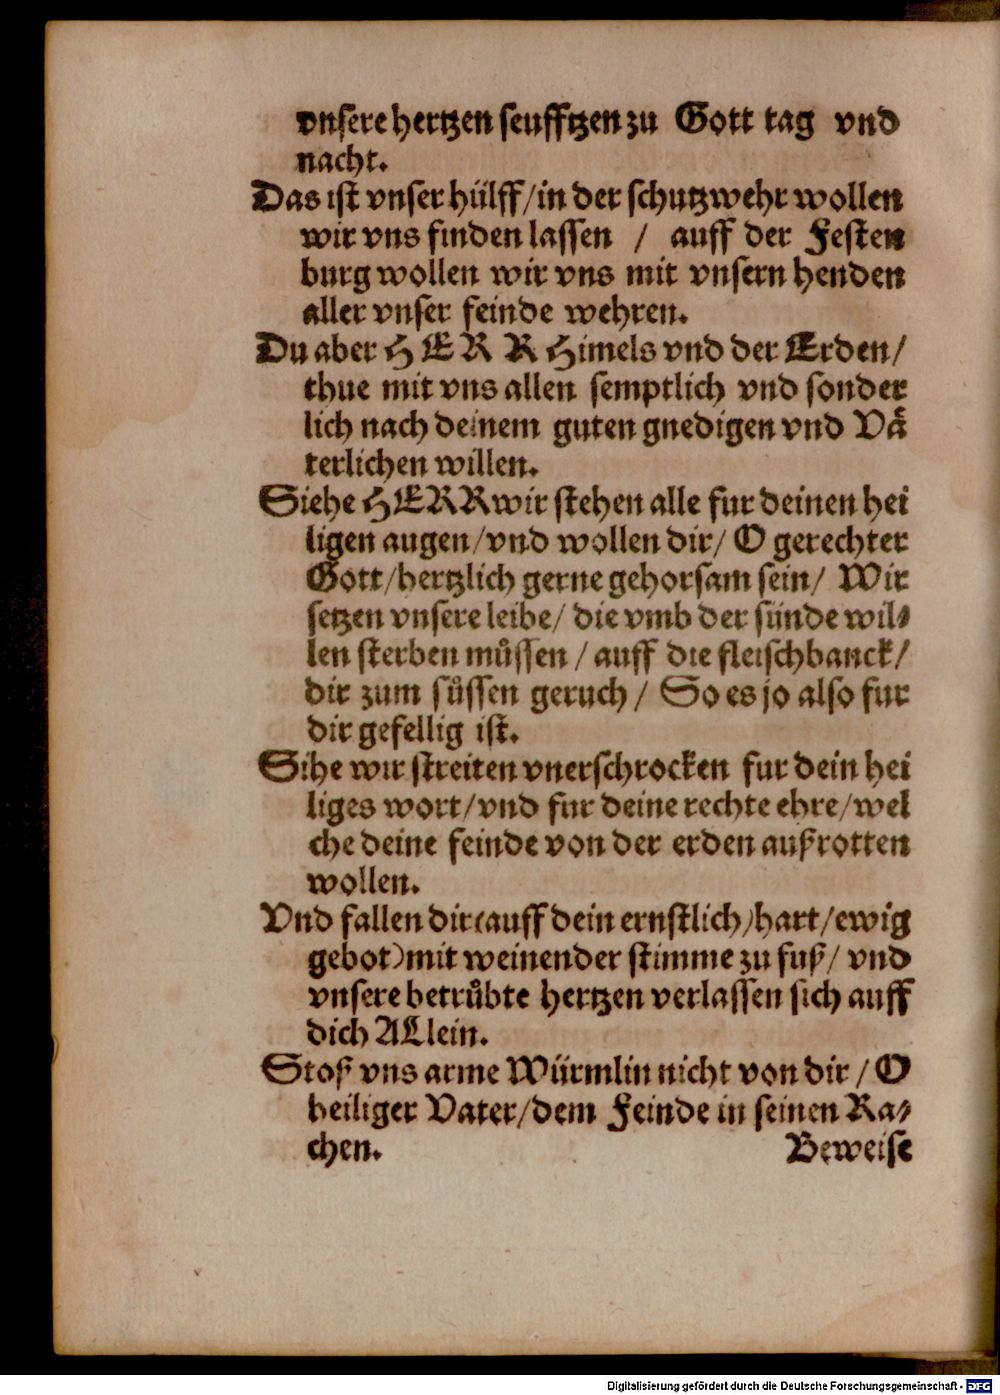 vnsere hertzen seufftzen zu Gott tag vnd
nacht.
Das ist vnser hülff/in der schutzwehr wollen
wir vns finden lassen / auff der Festen
burg wollen wir vns mit vnsern henden
aller vnser feinde wehren.
Du aber HERR Himels vnd der Erden/
thue mit vns allen semptlich vnd sonder
lich nach deinem guten gnedigen vnd Vaͤ
terlichen willen.
Siehe HERR wir stehen alle fur deinen hei
ligen augen/vnd wollen dir/ O gerechter
Gott/hertzlich gerne gehorsam sein/ Wir
setzen vnsere leibe/ die vmb der sünde wil⸗
len sterben muͤssen / auff die fleischbanck/
dir zum suͤssen geruch / So es jo also fur
dir gefellig ist.
Sihe wir streiten vnerschrocken fur dein hei
liges wort/vnd fur deine rechte ehre/wel
che deine feinde von der erden außrotten
wollen.
Vnd fallen dir (auff dein ernstlich/hart/ewig
gebot) mit weinender stimme zu fuß/ vnd
vnsere betruͤbte hertzen verlassen sich auff
dich ALlein.
Stoß vns arme Würmlin nicht von dir / O
heiliger Vater/dem Feinde in seinen Ra⸗
chen. Beweise
Digitalisierung gefördert durch die Deutsche Forschungsgemeinschaft - DFG